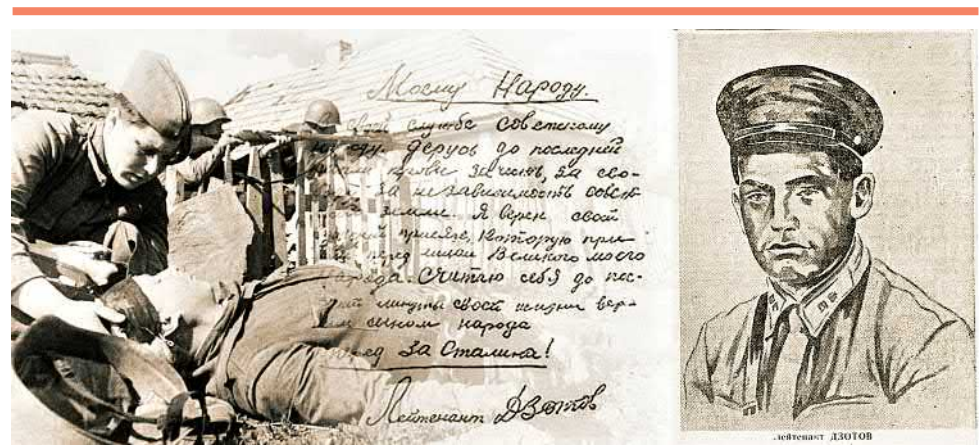 Моему Народу.
своей службе советскому
народу. Дерусь до последней
капли крови за честь, за сво-
за независимость совет-
земли. Я верен своей
присяге, которую при-
перед лицом Великого моего
народа. Считаю себя до пос-
минуты своей жизни вер-
сыном народа
За Сталина!
Лейтенант Дзотов
лейтенант ДЗОТОВ